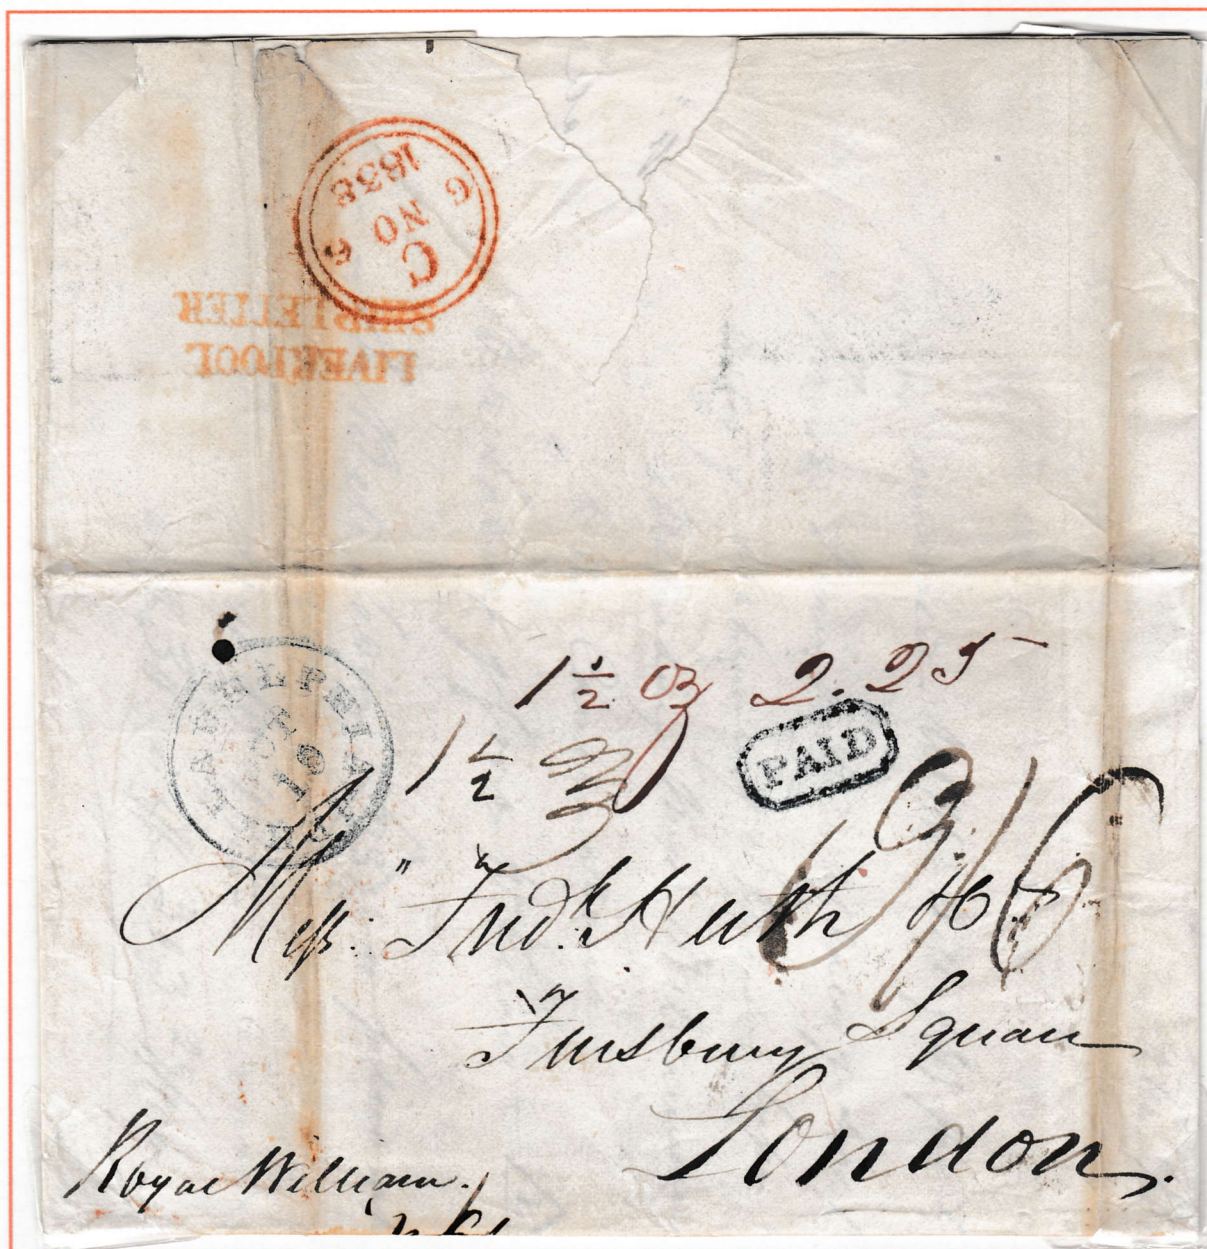 C
NO
6 6
1838
LIVERPOOL
SHIP LETTER
PHILADELPHIA Pa
OCT
19
1 1/2 oz 2.25
PAID
1 1/2
Mess: Fredk Huth & Co
Finsbury Square
London.
Royal William.